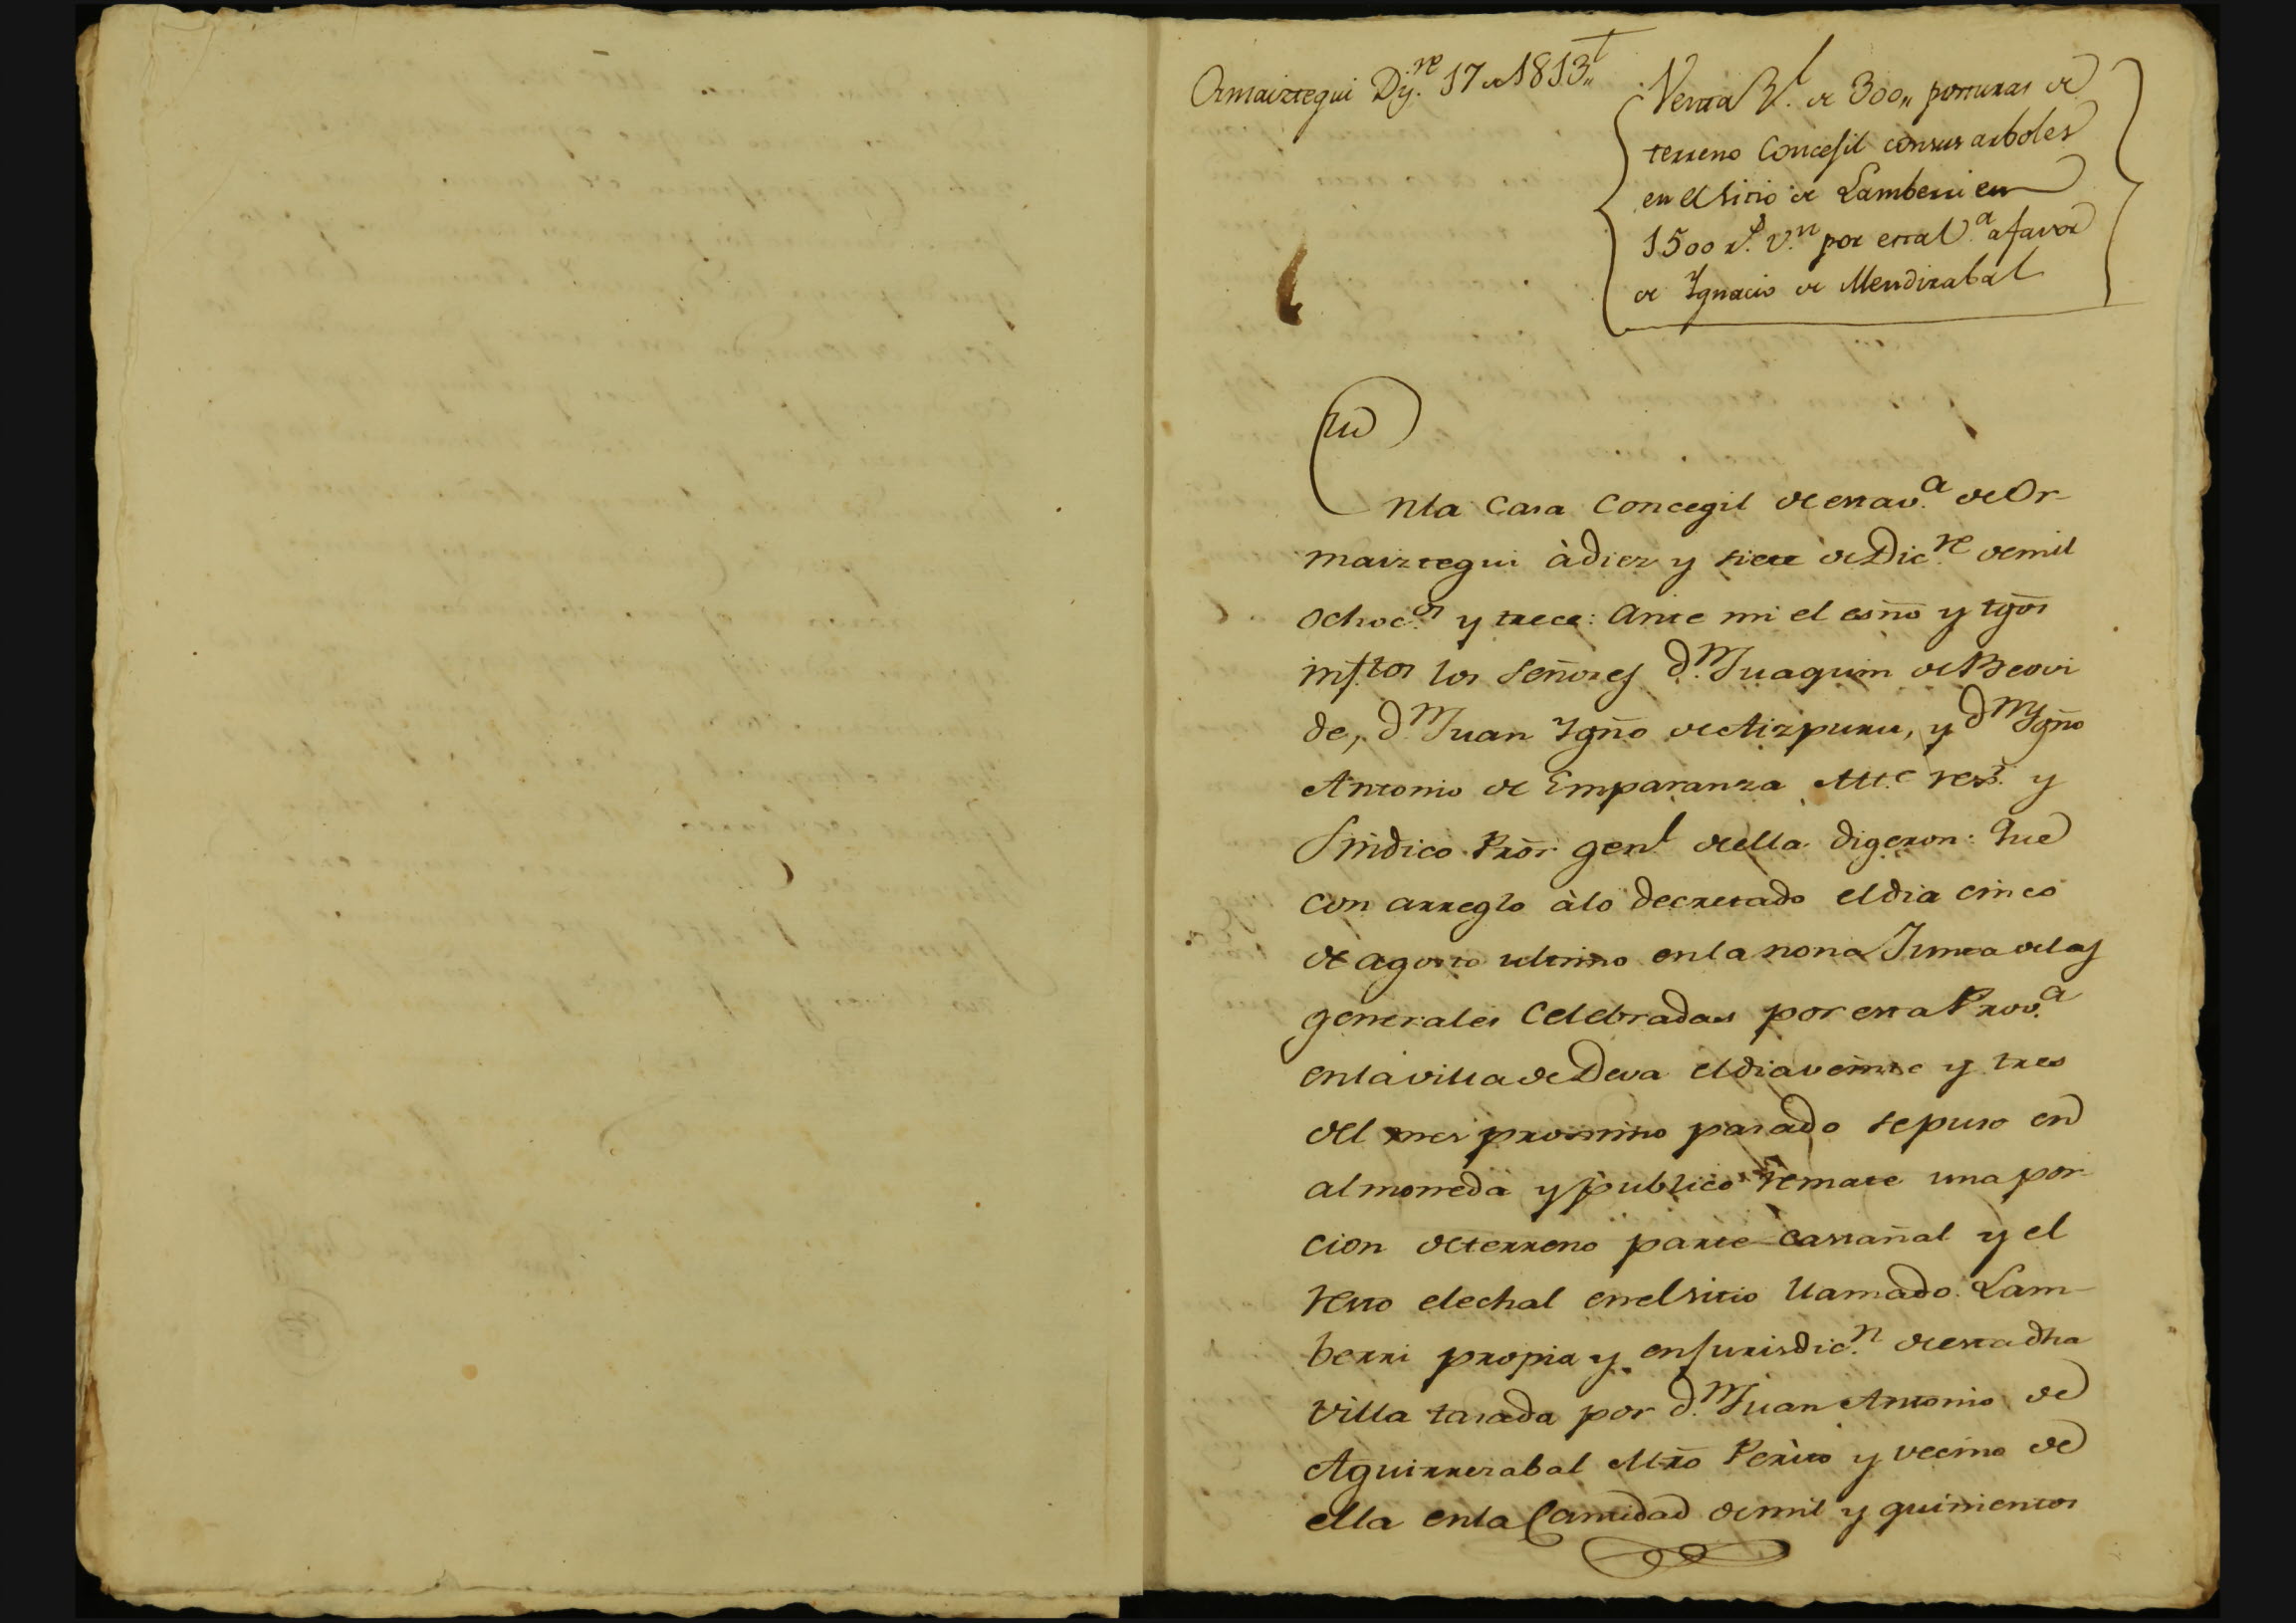 Ormaiztegui Dy.re 17 de 1813.,
Venta Rl. de 300,, posturas de
terreno Concejil consus arboles
en el sitio de Lamberri en
1500 rs. v.n por esta V.a a favor
de Ygnacio de Mendizabal
En
nla Casa Concegil de esta v.a de Or-
maiztegui à diez y siete de Dic.re de mil
ochoc.os y trece: Ante mi el esño y tgõs
insf.tos los Señores d.n Juaquin de Beovi
de, d.n Juan Ygño de Aizpuru, y d.n Ygño
Antonio de Emparanza Alc.e rex.r y
Sindico Prõr gen.l de ella digeron: Que
con arreglo àlo decretado el dia cinco
de agosto ultimo en la nona Junta de las
generales Celebradas por esta Prov.a
en la villa de Deva el dia veinte y tres
del mes proximo pasado se puso en
almoneda y publico remate una por-
cion de terreno parte castañal y el
resto elechal en el sitio llamado Lam-
berri propia y en jurisdic.n de esta dha
villa tasada por d.n Juan Antonio de
Aguirrezabal Mrõ Perito y vecino de
ella en la Cantidad de mil y quinientos